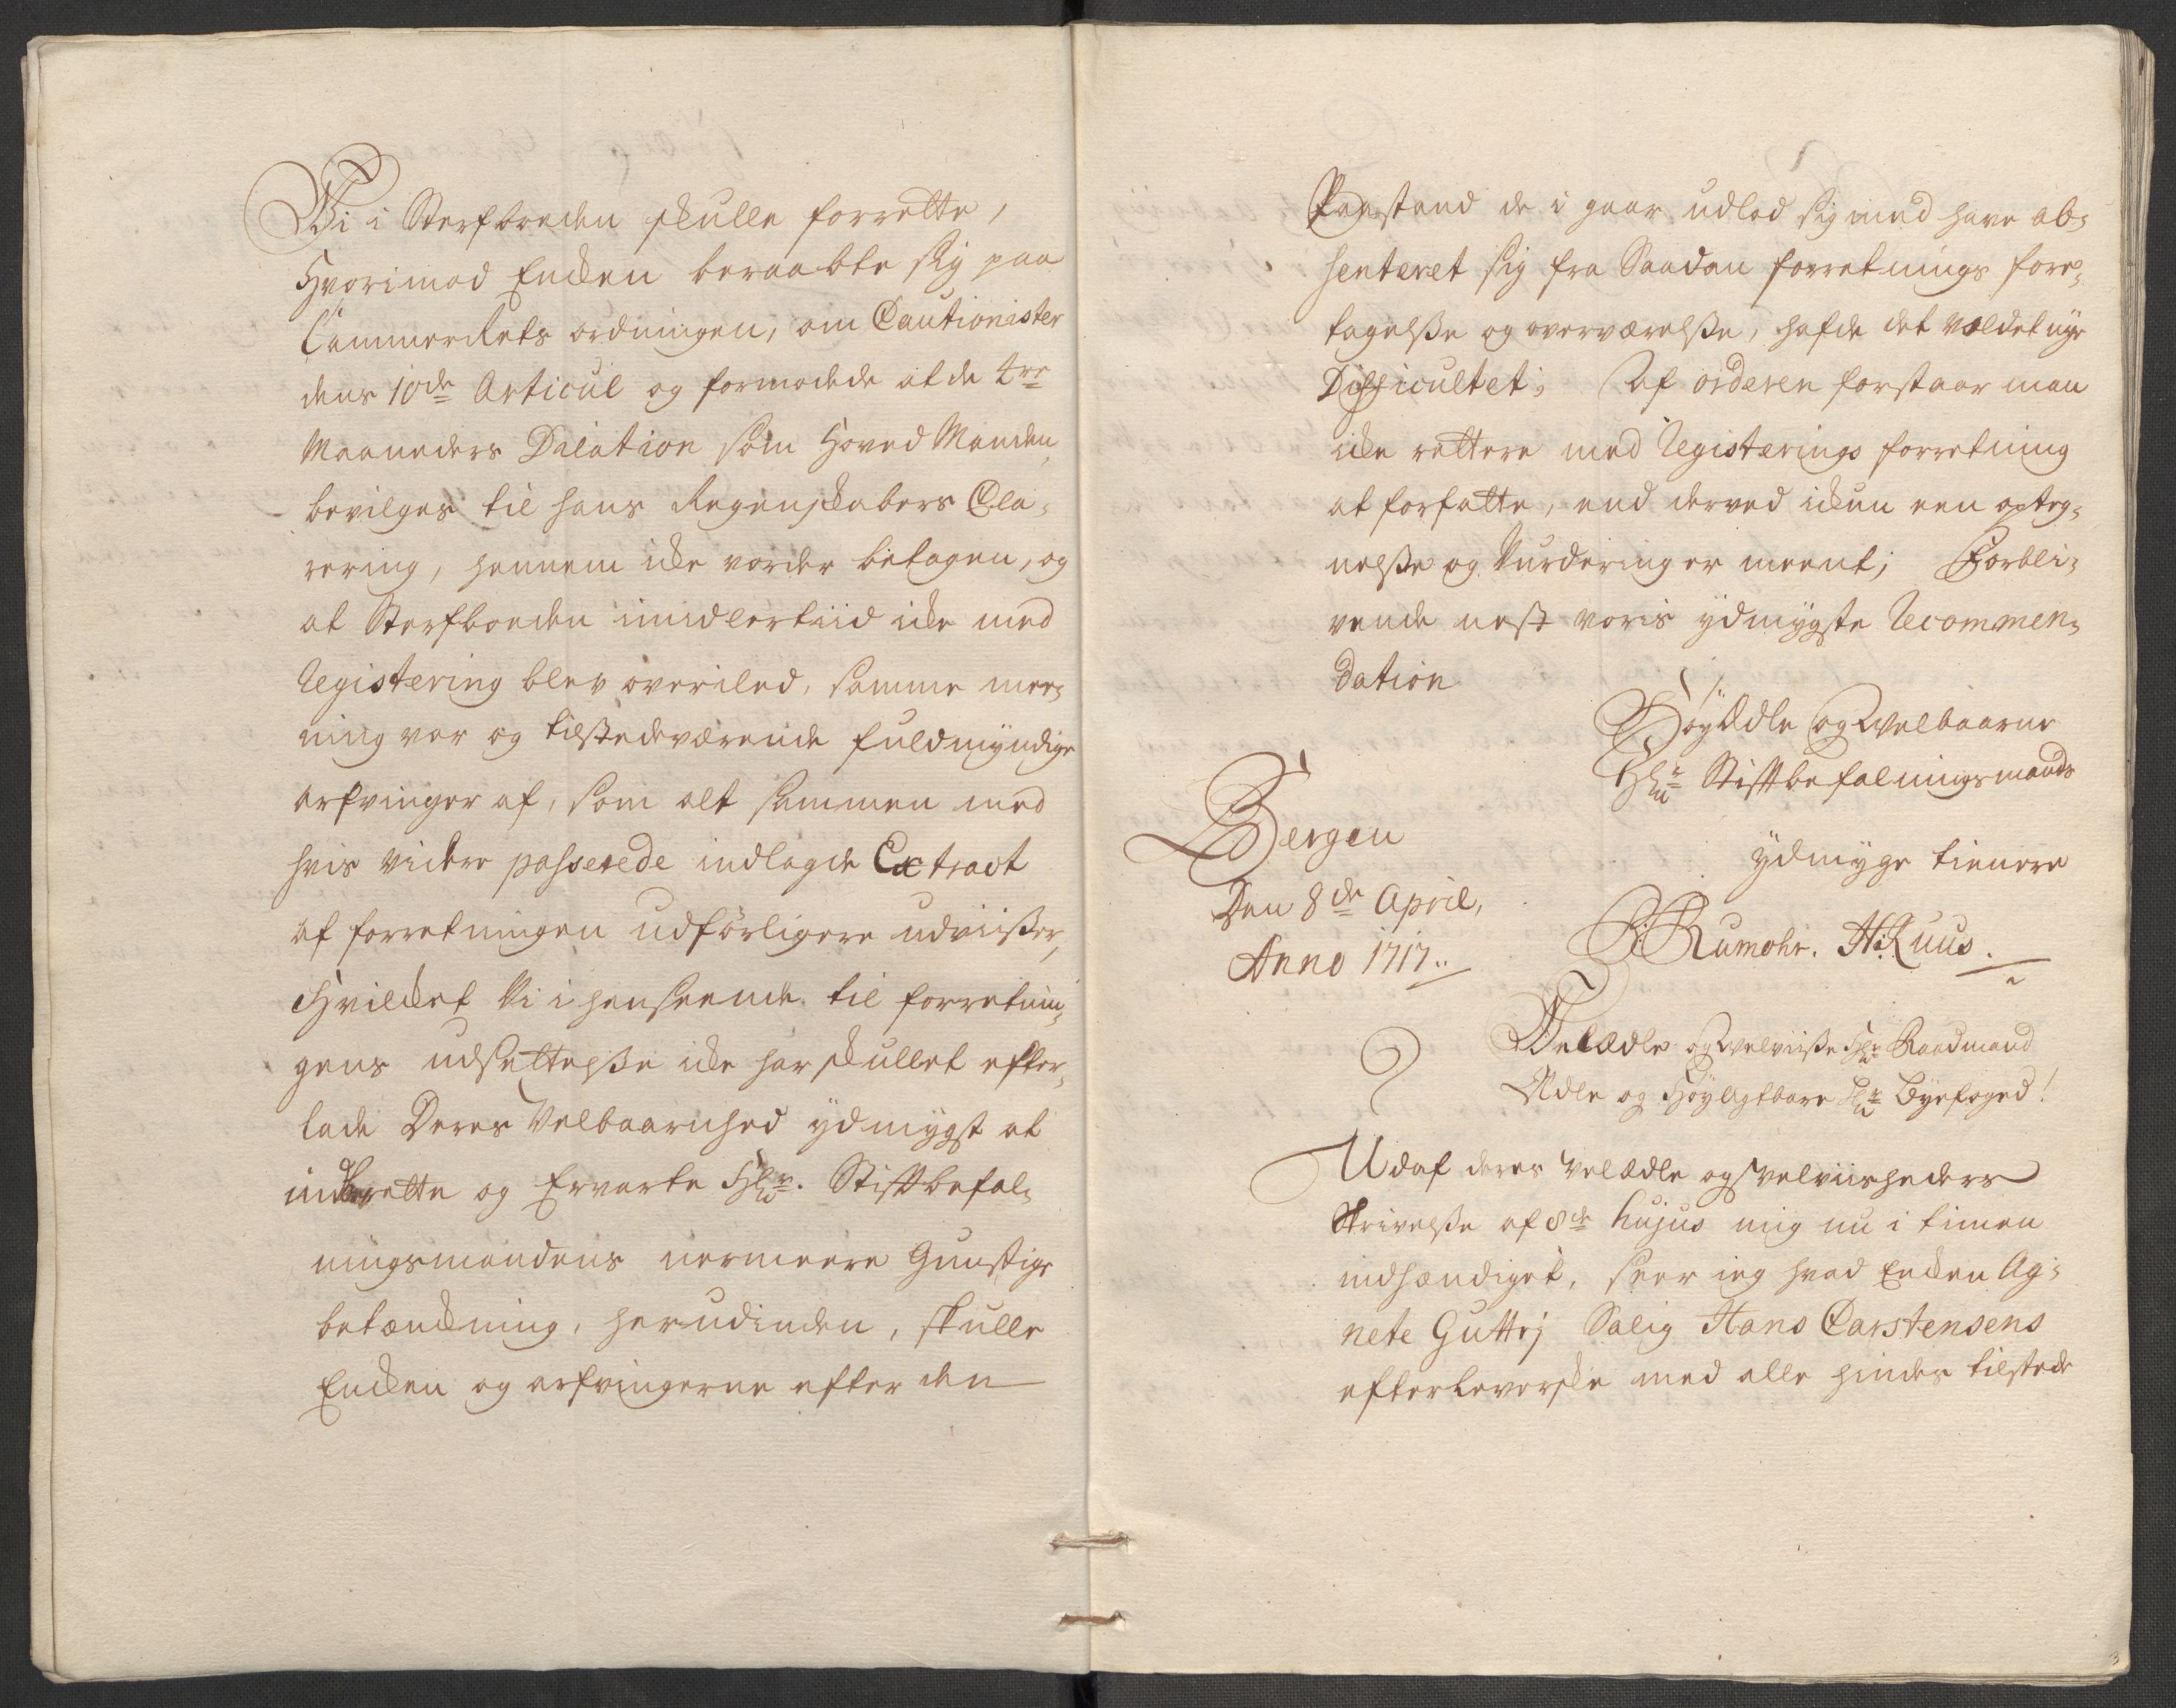 Wi i Sterfboeden skulle forrette,
Hvorimod Encken beraabte sig paa
Cammer Rets ordningen, om Cautionister
dens 10de Articul og formodede at de 4re
Maaneders Dilation som Hoved Manden
bevilges til hans Regenskabers Cla-
rering, hennem icke vorder betagen, og
at Sterfboeden imidlertiid icke med
Registering blev overiled, samme mee-
ning var og tilstedeværende fuldmyndige
arfvinger af, som alt sammen med
hvis videre passerede indlagde Extract
af forretningen udförligere udviisser,
Hvilcket Vi i henseende til forretnin-
gens udsettelsse icke har skullet efter-
lade Deres Velbaarenhed ydmygst at
indberette og Ervarte Hr. Stiftbefal-
ningsmandens nermeere Gunstige
betænckning, herudinden, skulle
Encken og arfvingerne efter den
Paastand de i gaar udlod sig med have ab-
senteret sig fra Saadan forretnings fore-
tagelsse og overværelsse, hafde det voldet nye
Difficultet; Af orderen forstaar man
icke rettere med Registerings forretning
at forfatte, end derved ickun een opteg-
nelsse og Vurdering er meent; Forbli-
vende nest voris ydmygste Recommen-
dation
HöyÆdle og Velbaarne
Hr Stiftbefalningsmands
ydmyge tienere
Bergen
Den 8de April,
Anno 1717..
Rumohr. H: Ruus.
VelÆdle og Velviisse Hr Raadmand
Ædle og Höyagtbare Hr Byefoged!
Udaf deres Velædle og Velviisheders
Skrivelsse af 8de hujus mig nu i timen
indhændiget, seer ieg hvad Encken Ag-
nete Guttrj Salig Hans Carstensens
efterleverske med alle hindes tilstede